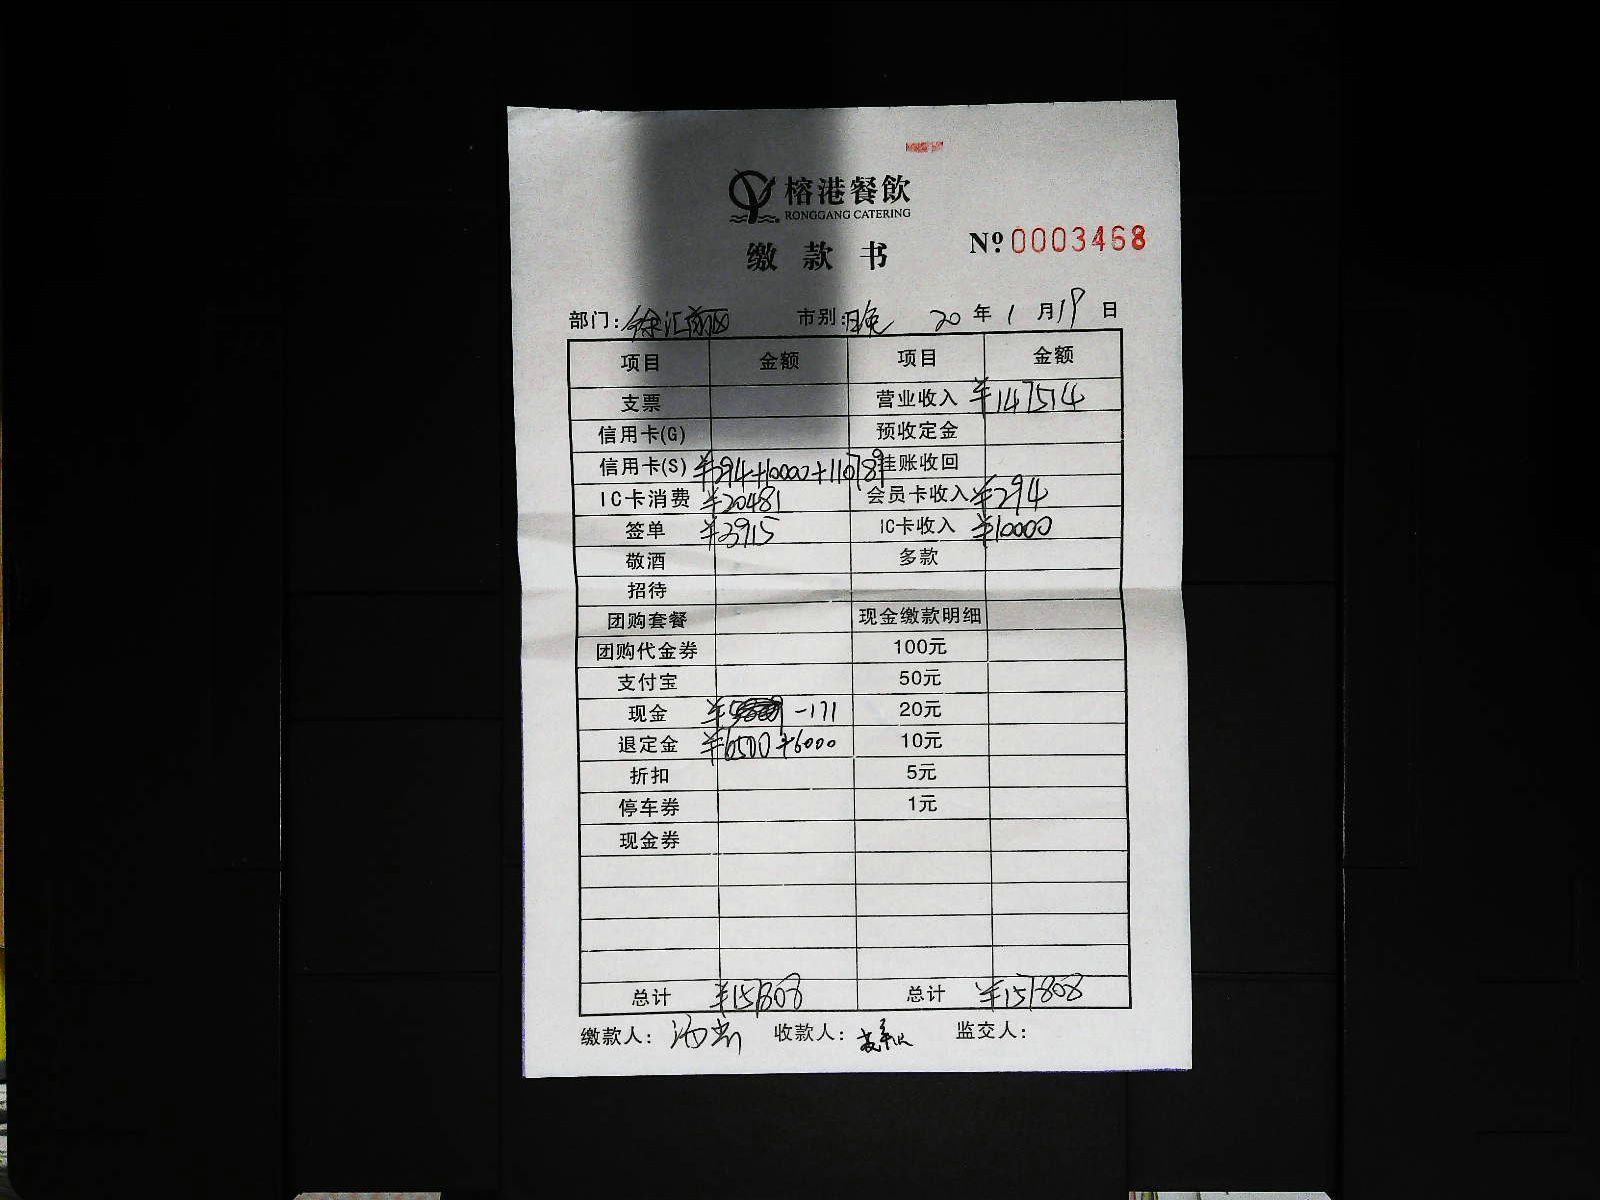 榕港餐飲
RONGGANG CATERING
缴款书
Nº:0003468
部门: 徐汇前区 市别: 晚 20年1月19日
项目 金额 项目 金额
支票 营业收入 ¥147514
信用卡(G) 预收定金
信用卡(S) ¥294+10000+110789 挂账收回
IC卡消费 ¥20481 会员卡收入 ¥294
签单 ¥3915 IC卡收入 ¥10000
敬酒 多款
招待
团购套餐 现金缴款明细
团购代金券 100元
支付宝 50元
现金 ¥ -171 20元
退定金 ¥6500+6000 10元
折扣 5元
停车券 1元
现金券
总计 ¥157808 总计 ¥157808
缴款人: 收款人: 监交人: